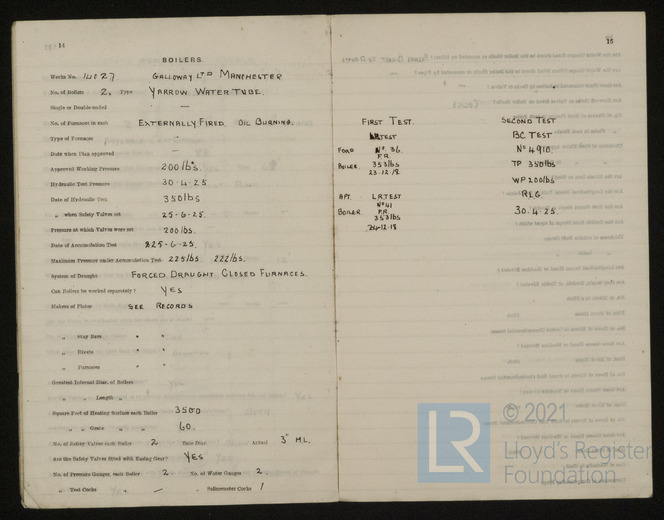 14
BOILERS.
Works No. 14027 GALLOWAY LTD MANCHESTER
No. of Boilers 2. Type YARROW WATER TUBE.
Single or Double-ended —
No. of Furnaces in each EXTERNALLY FIRED. OIL BURNING.
Type of Furnaces
Date when Plan approved —
Approved Working Pressure 200 lbs.
Hydraulic Test Pressure 30-4-25
Date of Hydraulic Test 350lbs
„ when Safety Valves set 25-6-25.
Pressure at which Valves were set 200 lbs.
Date of Accumulation Test 25-6-25.
Maximum Pressure under Accumulation Test 225lbs 222lbs.
System of Draught FORCED DRAUGHT. CLOSED FURNACES.
Can Boilers be worked separately? YES
Makers of Plates SEE RECORDS
„ Stay Bars " "
„ Rivets " "
„ Furnaces " "
Greatest Internal Diam. of Boilers
„ „ Length „
Square Feet of Heating Surface each Boiler 3500
„ „ Grate „ „ 60.
No. of Safety Valves each Boiler 2 Rule Diam. Actual 3" H.L.
Are the Safety Valves fitted with Easing Gear? YES
No. of Pressure Gauges, each Boiler 2 No. of Water Gauges 2
„ Test Cocks „ — „ Salinometer Cocks 1
15
FIRST TEST.
LR TEST
FORD No. 36.
F.R.
BOILER 353 lbs
23.12.18
AFT. LR TEST
No 41
BOILER F.R.
353 lbs
24-12-18
SECOND TEST
BC TEST
No 4910.
TP 350 lbs
WP 200 lbs
R.L.G.
30.4.25.
LR
© 2021
Lloyd's Register
Foundation